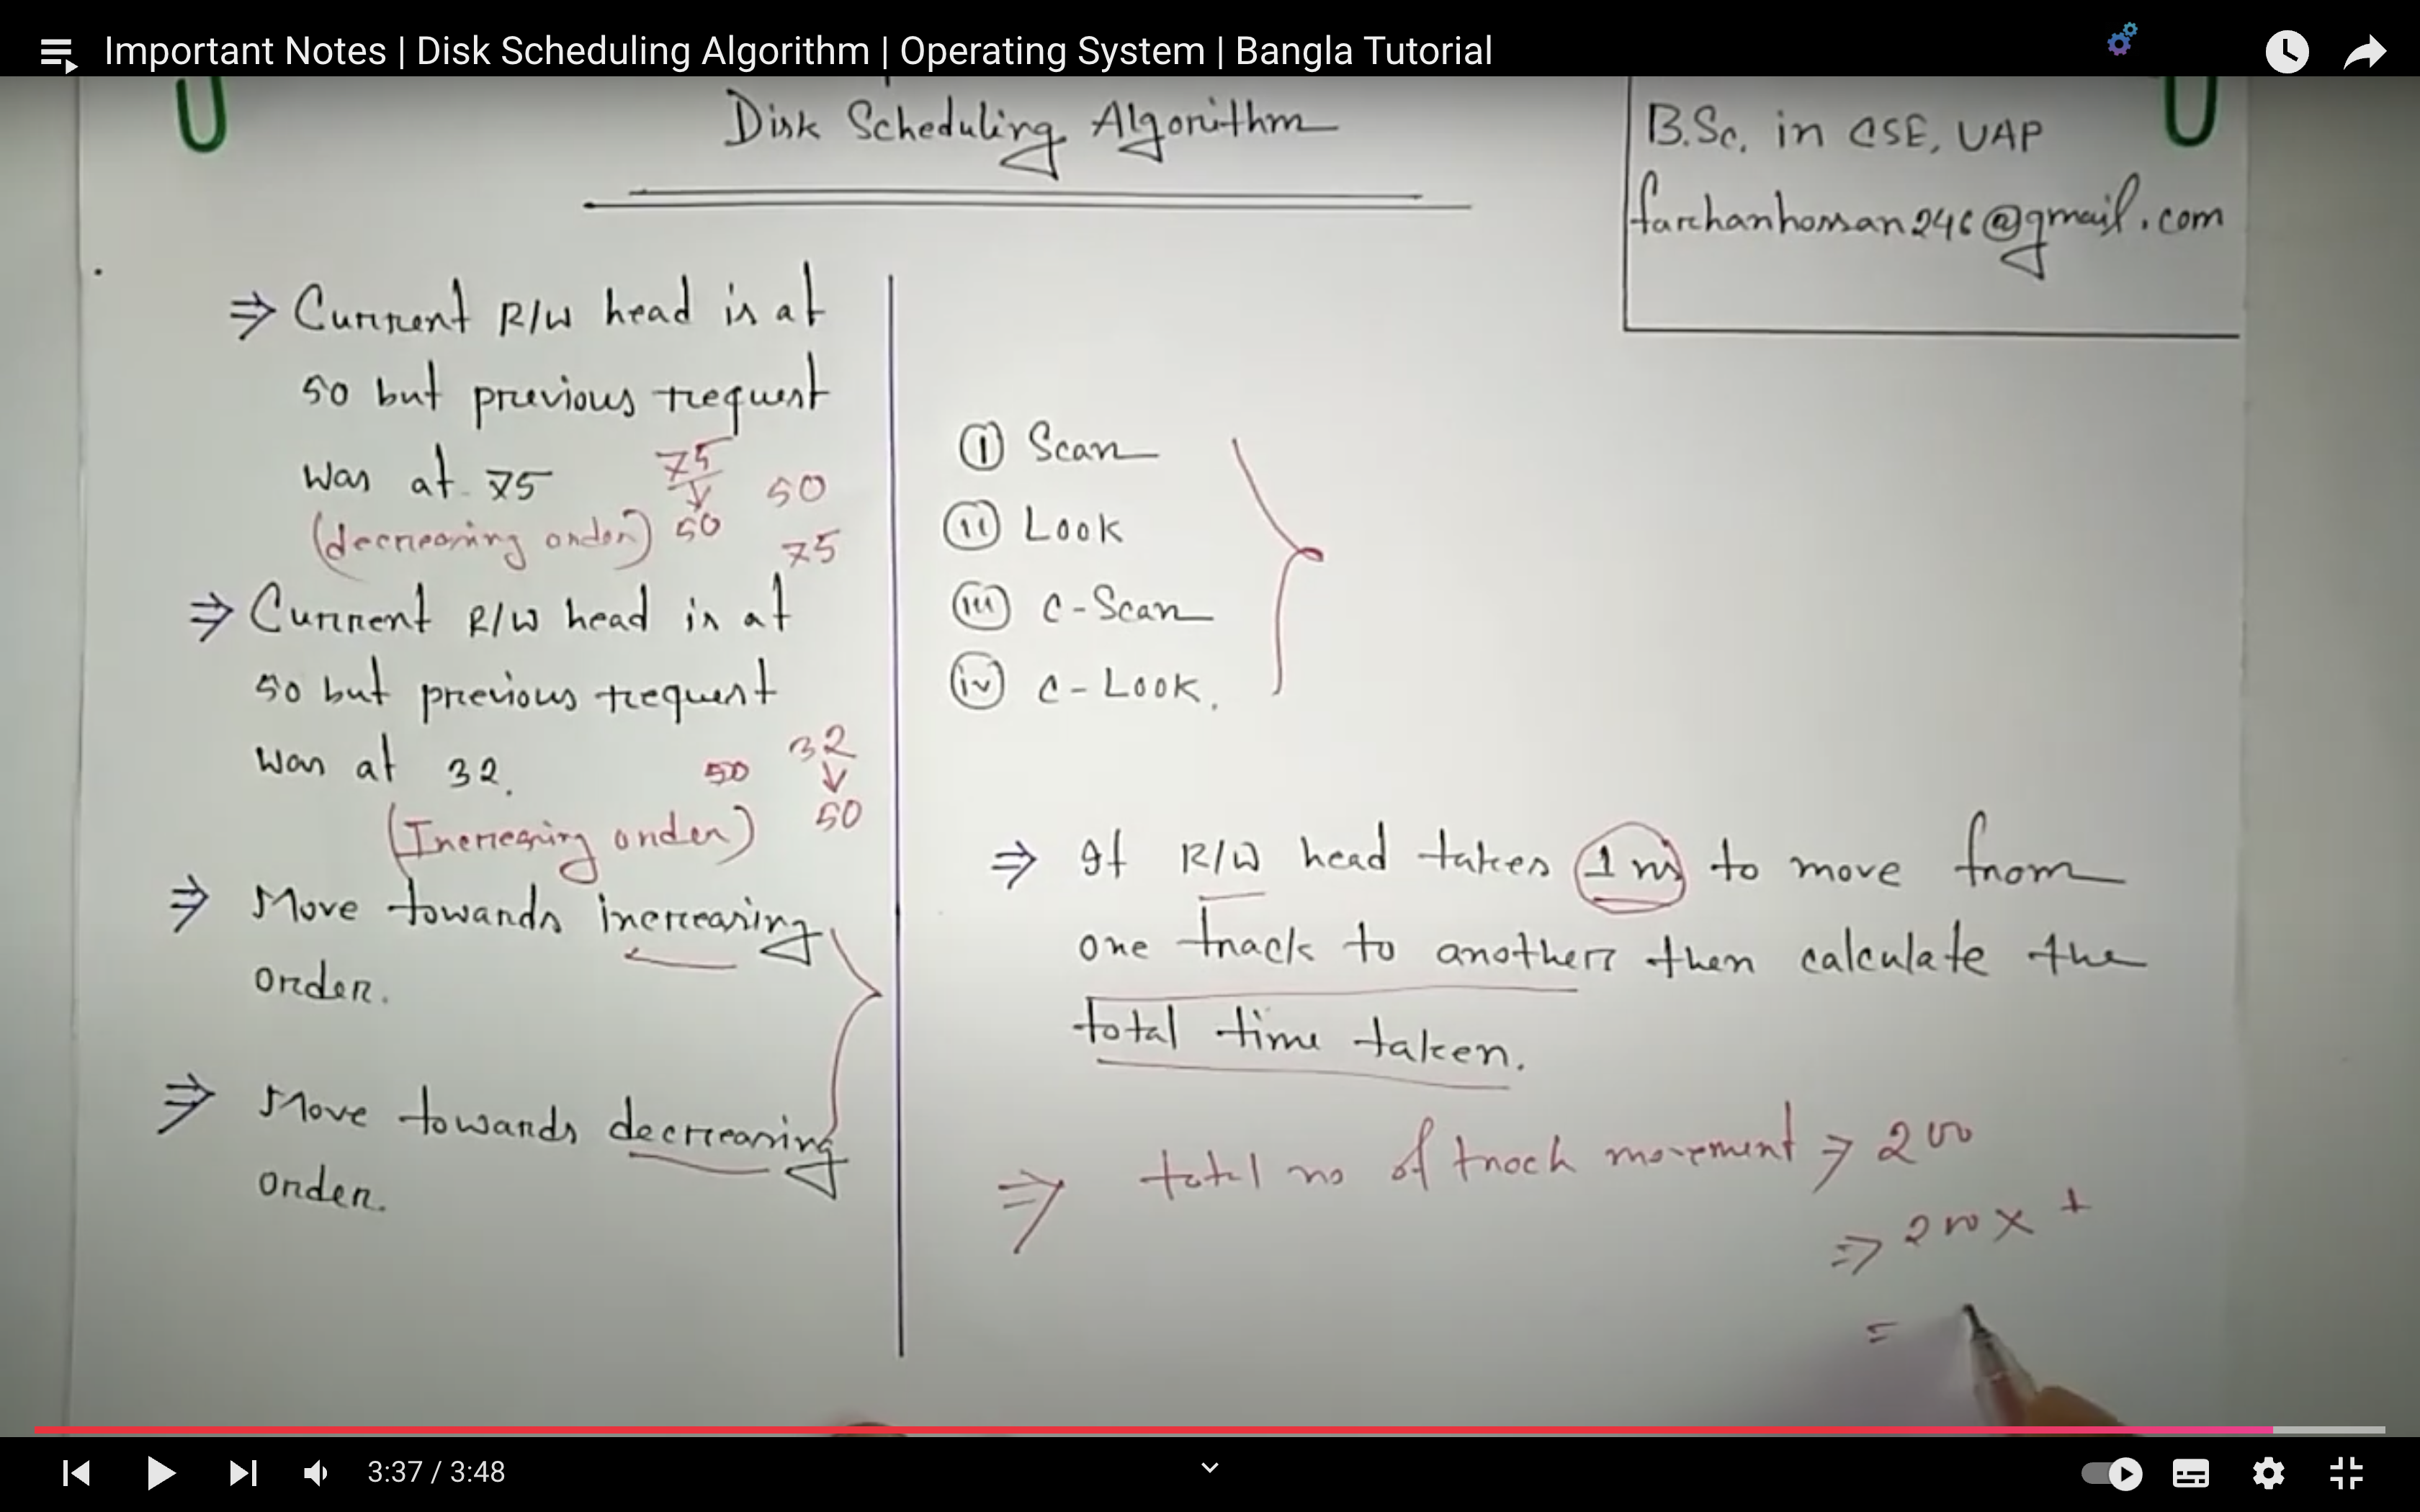 Important Notes | Disk Scheduling Algorithm | Operating System | Bangla Tutorial
Disk Scheduling Algorithm
B.Sc. in CSE, UAP
farhanhossan246@gmail.com
⇒ Current R/W head is at
50 but previous request
was at 75
75
↓
50
50
75
(decreasing order)
⇒ Current R/W head is at
50 but previous request
was at 32.
50
32
↓
50
(Increasing order)
⇒ Move towards increasing
order.
⇒ Move towards decreasing
order.
(i) Scan
(ii) Look
(iii) C-Scan
(iv) C-Look.
⇒ If R/W head takes 1 ms to move from
one track to another then calculate the
total time taken.
⇒ total no of track movement ⇒ 200
⇒ 200 x
=
3:37 / 3:48